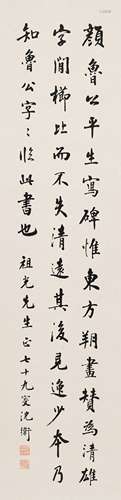 顏魯公平生寫碑惟東方朔畫贊為清雄
字間櫛比而不失清遠其後見逸少本乃
知魯公字字臨此書也
祖光先生正七十九叟沈衛